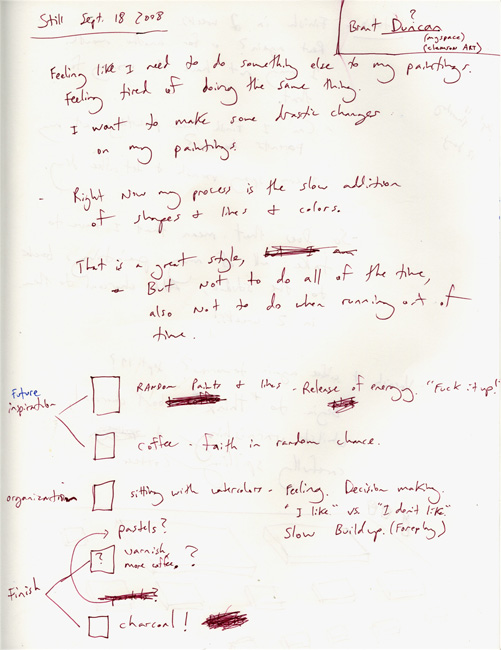 Still Sept. 18 2008
?
Brant Duncan
(myspace)
(clemson ART)
Feeling like I need to do something else to my paintings.
Feeling tired of doing the same thing.
I want to make some drastic changes
on my paintings.
- Right Now my process is the slow addition
of shapes & lines & colors.
That is a great style, but I am
- But not to do all of the time,
also Not to do when running out of
time.
Future
inspiration
RANDOM Paints & lines - Release of energy. "Fuck it up!"
coffee - faith in random chance.
organization
sitting with watercolors - Feeling. Decision making.
"I like" vs. "I don't like."
Slow Buildup. (Foreplay)
pastels?
? varnish,
more coffee. ?
Finish
pastels?
charcoal!